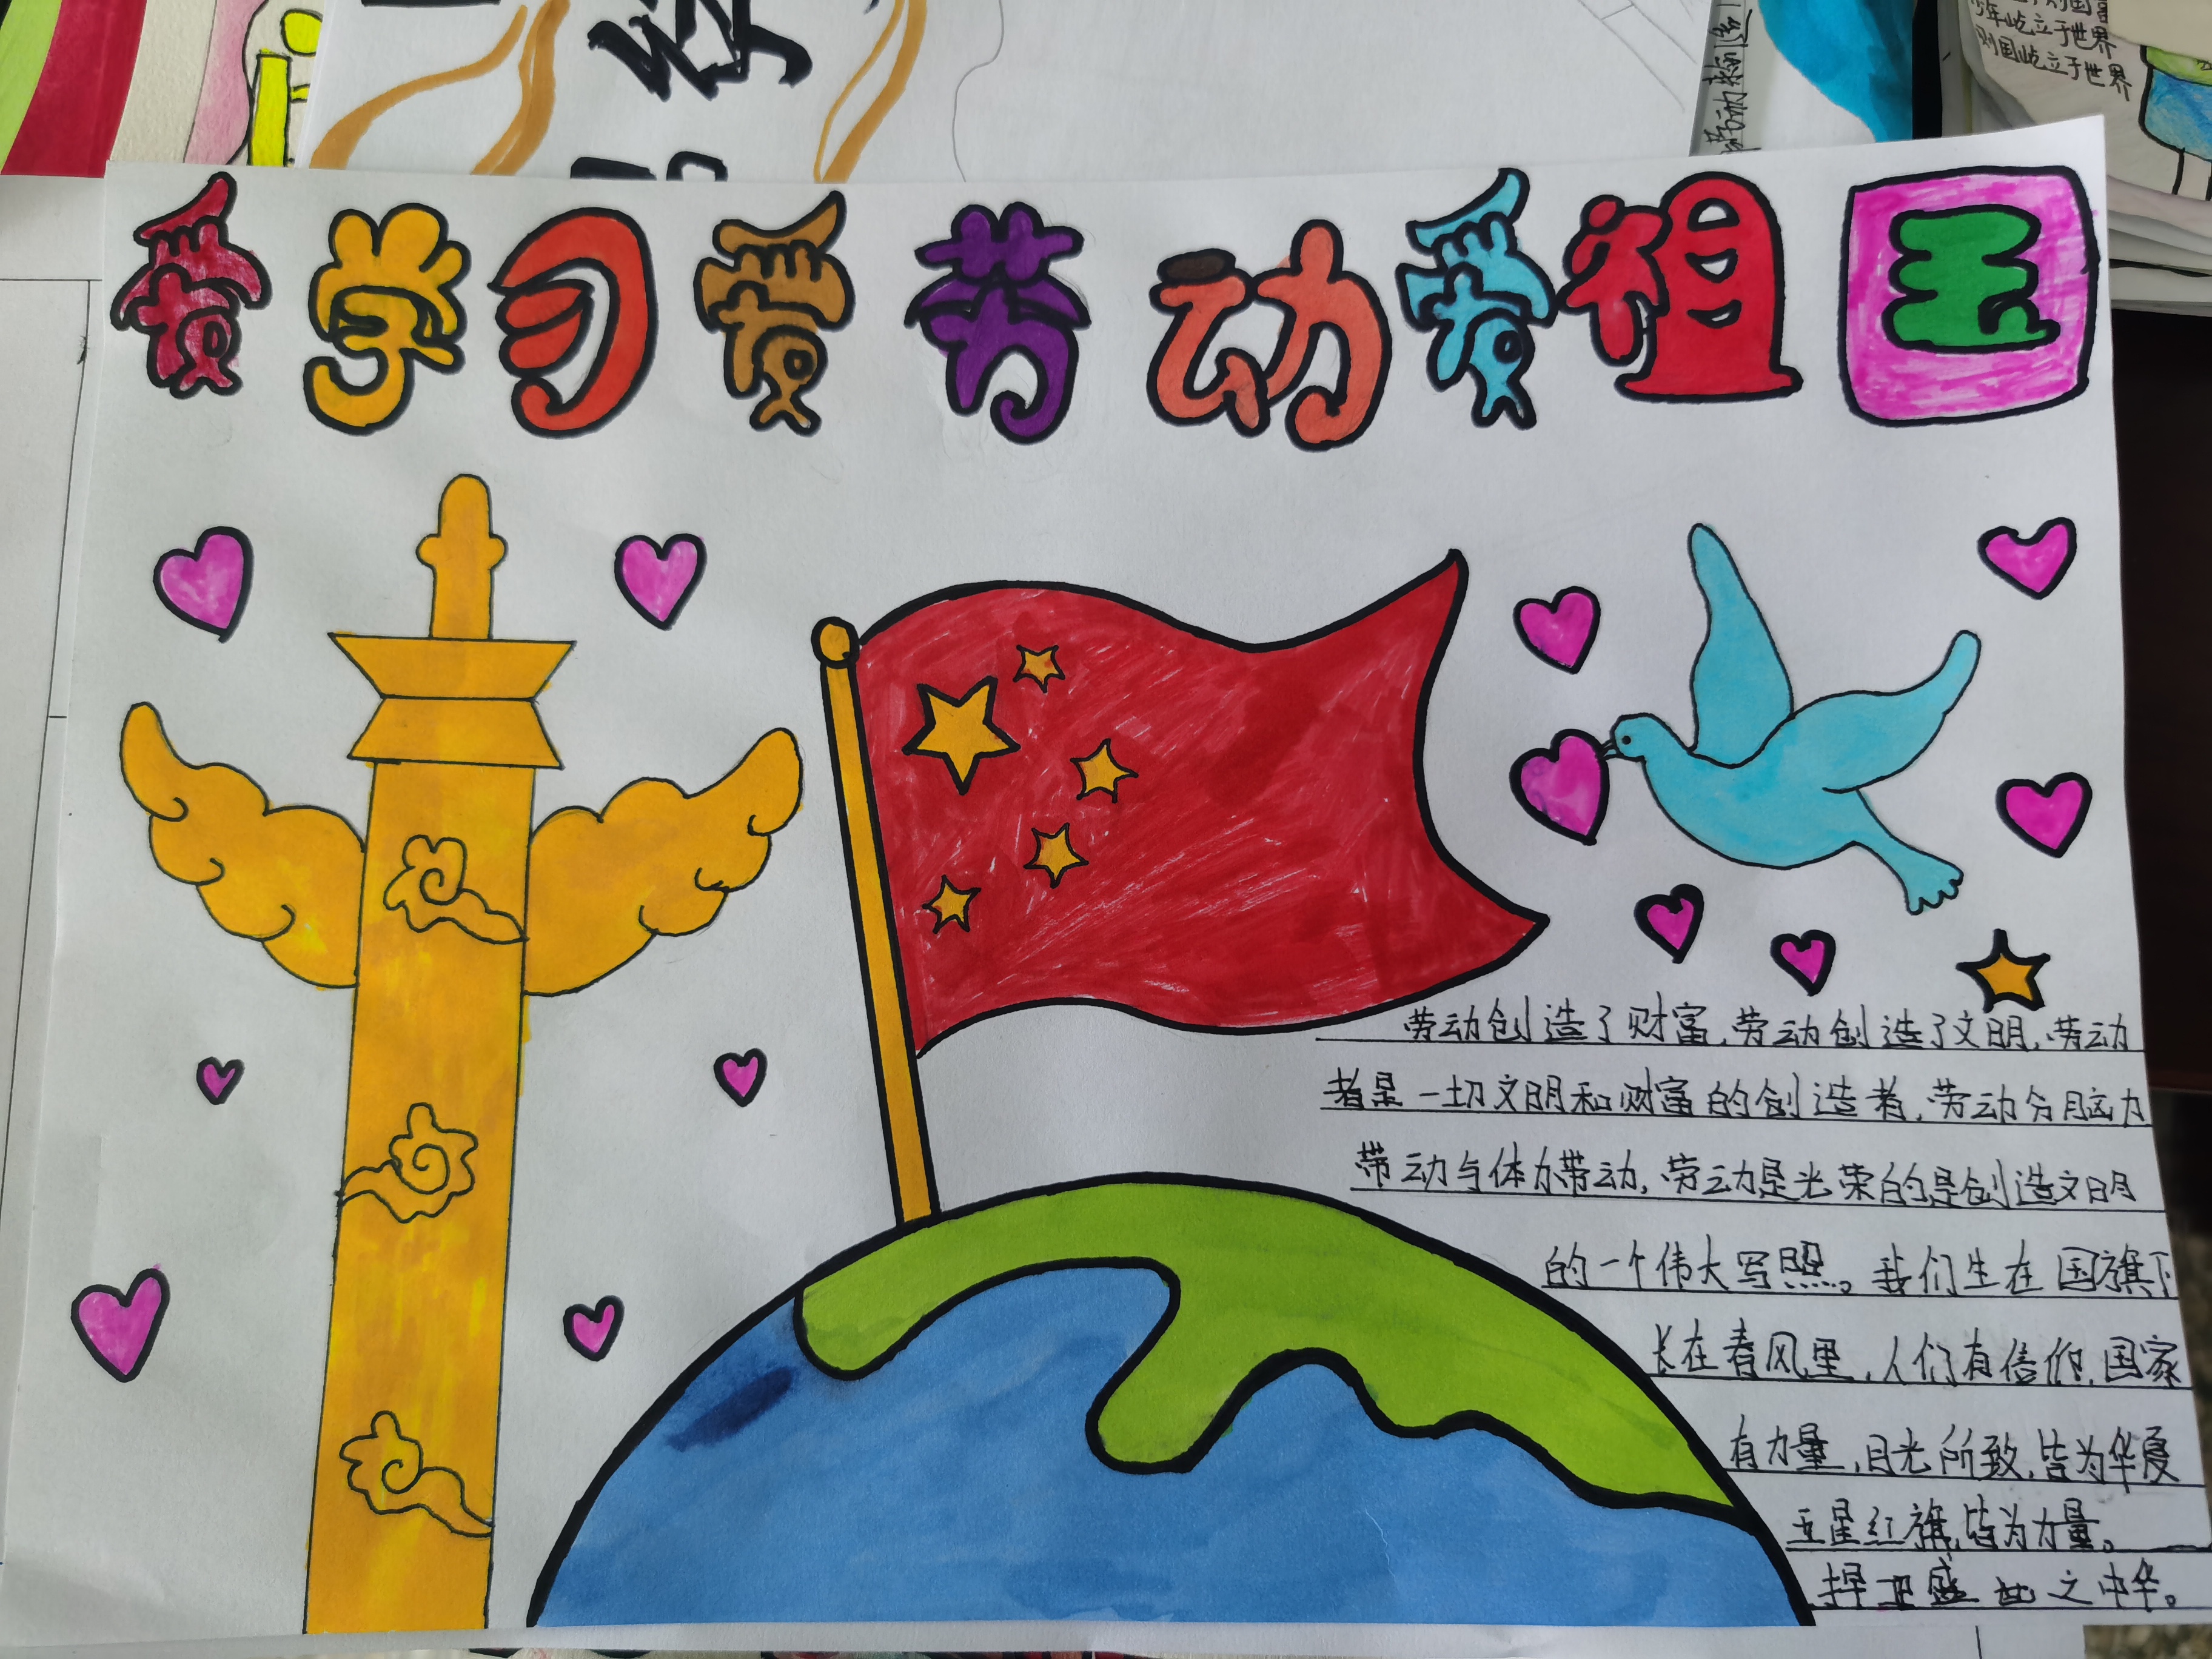 少年屹立于世界
则国屹立于世界
爱学习爱劳动爱祖国
劳动创造了财富,劳动创造了文明,劳动
者是一切文明和财富的创造者,劳动分脑力
带动与体力带动,劳动是光荣的是创造文明
的一个伟大写照。我们生在国旗下
长在春风里,人们有信仰,国家
有力量,目光所致,皆为华夏
五星红旗,皆为力量。
捍卫盛世之中华。